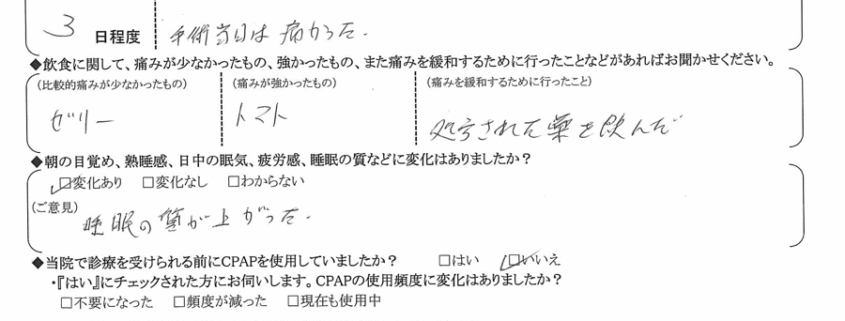 3 日程度 手術当日は痛かった.
◆飲食に関して、痛みが少なかったもの、強かったもの、また痛みを緩和するために行ったことなどがあればお聞かせください。
(比較的痛みが少なかったもの) (痛みが強かったもの) (痛みを緩和するために行ったこと)
ゼリー トマト 処方された薬を飲んだ
◆朝の目覚め、熟睡感、日中の眠気、疲労感、睡眠の質などに変化はありましたか?
☑変化あり □変化なし □わからない
(ご意見)
睡眠の質が上がった.
◆当院で診療を受けられる前にCPAPを使用していましたか? □はい ☑いいえ
・『はい』にチェックされた方にお伺いします。CPAPの使用頻度に変化はありましたか?
□不要になった □頻度が減った □現在も使用中